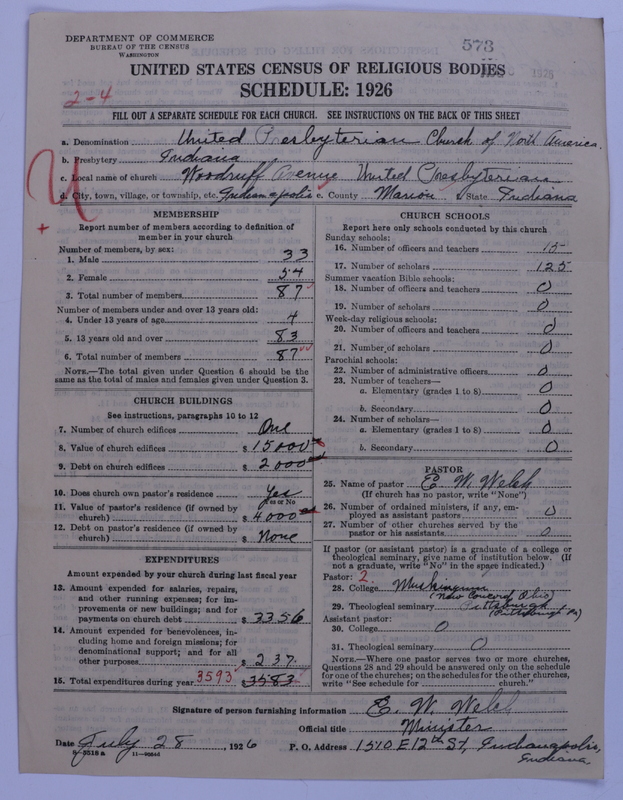 DEPARTMENT OF COMMERCE
BUREAU OF THE CENSUS
WASHINGTON
573
1926
UNITED STATES CENSUS OF RELIGIOUS BODIES
2-4
SCHEDULE: 1926
FILL OUT A SEPARATE SCHEDULE FOR EACH CHURCH. SEE INSTRUCTIONS ON THE BACK OF THIS SHEET
a. Denomination United Presbyterian Church of North America.
b. Presbytery Indiana
c. Local name of church Woodruff Avenue United Presbyterian
d. City, town, village, or township, etc. Indianapolis e. County Marion State Indiana
MEMBERSHIP
Report number of members according to definition of
member in your church
Number of members, by sex:
1. Male 33
2. Female 54
3. Total number of members 87
Number of members under and over 13 years old:
4. Under 13 years of age 4
5. 13 years old and over 83
6. Total number of members 87
NOTE.—The total given under Question 6 should be the
same as the total of males and females given under Question 3.
CHURCH BUILDINGS
See instructions, paragraphs 10 to 12
7. Number of church edifices One
8. Value of church edifices $ 15000
9. Debt on church edifices $ 2000
10. Does church own pastor's residence Yes
Yes or No
11. Value of pastor's residence (if owned by
church) $ 4000
12. Debt on pastor's residence (if owned by
church) $ None
EXPENDITURES
Amount expended by your church during last fiscal year
13. Amount expended for salaries, repairs,
and other running expenses; for im-
provements or new buildings; and for
payments on church debt $ 3356
14. Amount expended for benevolences, in-
cluding home and foreign missions; for
denominational support; and for all
other purposes $ 237.
15. Total expenditures during year 3593 $ 3583
CHURCH SCHOOLS
Report here only schools conducted by this church
Sunday schools:
16. Number of officers and teachers 15
17. Number of scholars 125
Summer vacation Bible schools:
18. Number of officers and teachers 0
19. Number of scholars 0
Week-day religious schools:
20. Number of officers and teachers 0
21. Number of scholars 0
Parochial schools:
22. Number of administrative officers 0
23. Number of teachers—
a. Elementary (grades 1 to 8) 0
b. Secondary 0
24. Number of scholars—
a. Elementary (grades 1 to 8) 0
b. Secondary 0
PASTOR
25. Name of pastor E. W. Welch
(If church has no pastor, write "None")
26. Number of ordained ministers, if any, em-
ployed as assistant pastors 0
27. Number of other churches served by the
pastor or his assistants 0
If pastor (or assistant pastor) is a graduate of a college or
theological seminary, give name of institution below. (If
not a graduate, write "No" in the space indicated.)
Pastor: 2
28. College Muskingum
(New Concord Ohio)
29. Theological seminary Pittsburgh
(Pittsburgh Pa)
Assistant pastor:
30. College 0
31. Theological seminary 0
NOTE.—Where one pastor serves two or more churches,
Questions 28 and 29 should be answered only on the schedule
for one of the churches; on the schedules for the other churches,
write "See schedule for church."
Signature of person furnishing information E. W. Welch
Official title Minister
Date July 28, 1926 P. O. Address 1510 E 12th St, Indianapolis,
Indiana